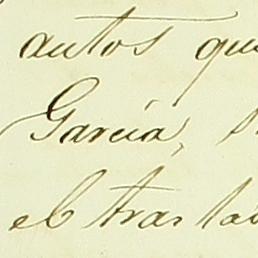 autos que
García, s
el trasla